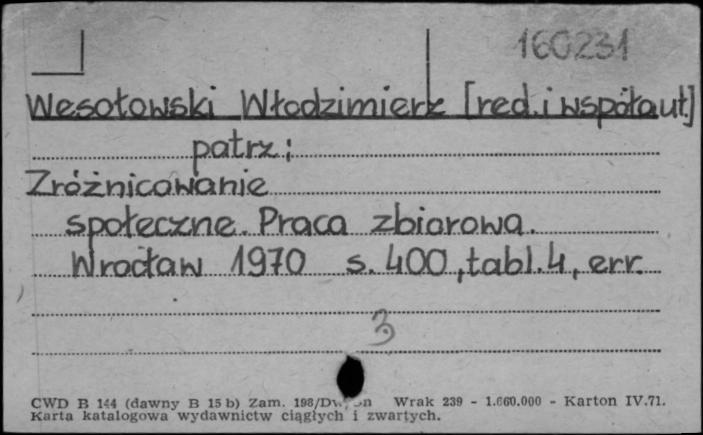 160231
Wesołowski Włodzimierz [red. i współaut.]
patrz:
Zróżnicowanie
społeczne. Praca zbiorowa.
Wrocław 1970 s. 400, tabl. 4, err.
3
CWD B 144 (dawny B 15 b) Zam. 198/ Wrak 239 - 1.660.000 - Karton IV.71.
Karta katalogowa wydawnictw ciągłych i zwartych.